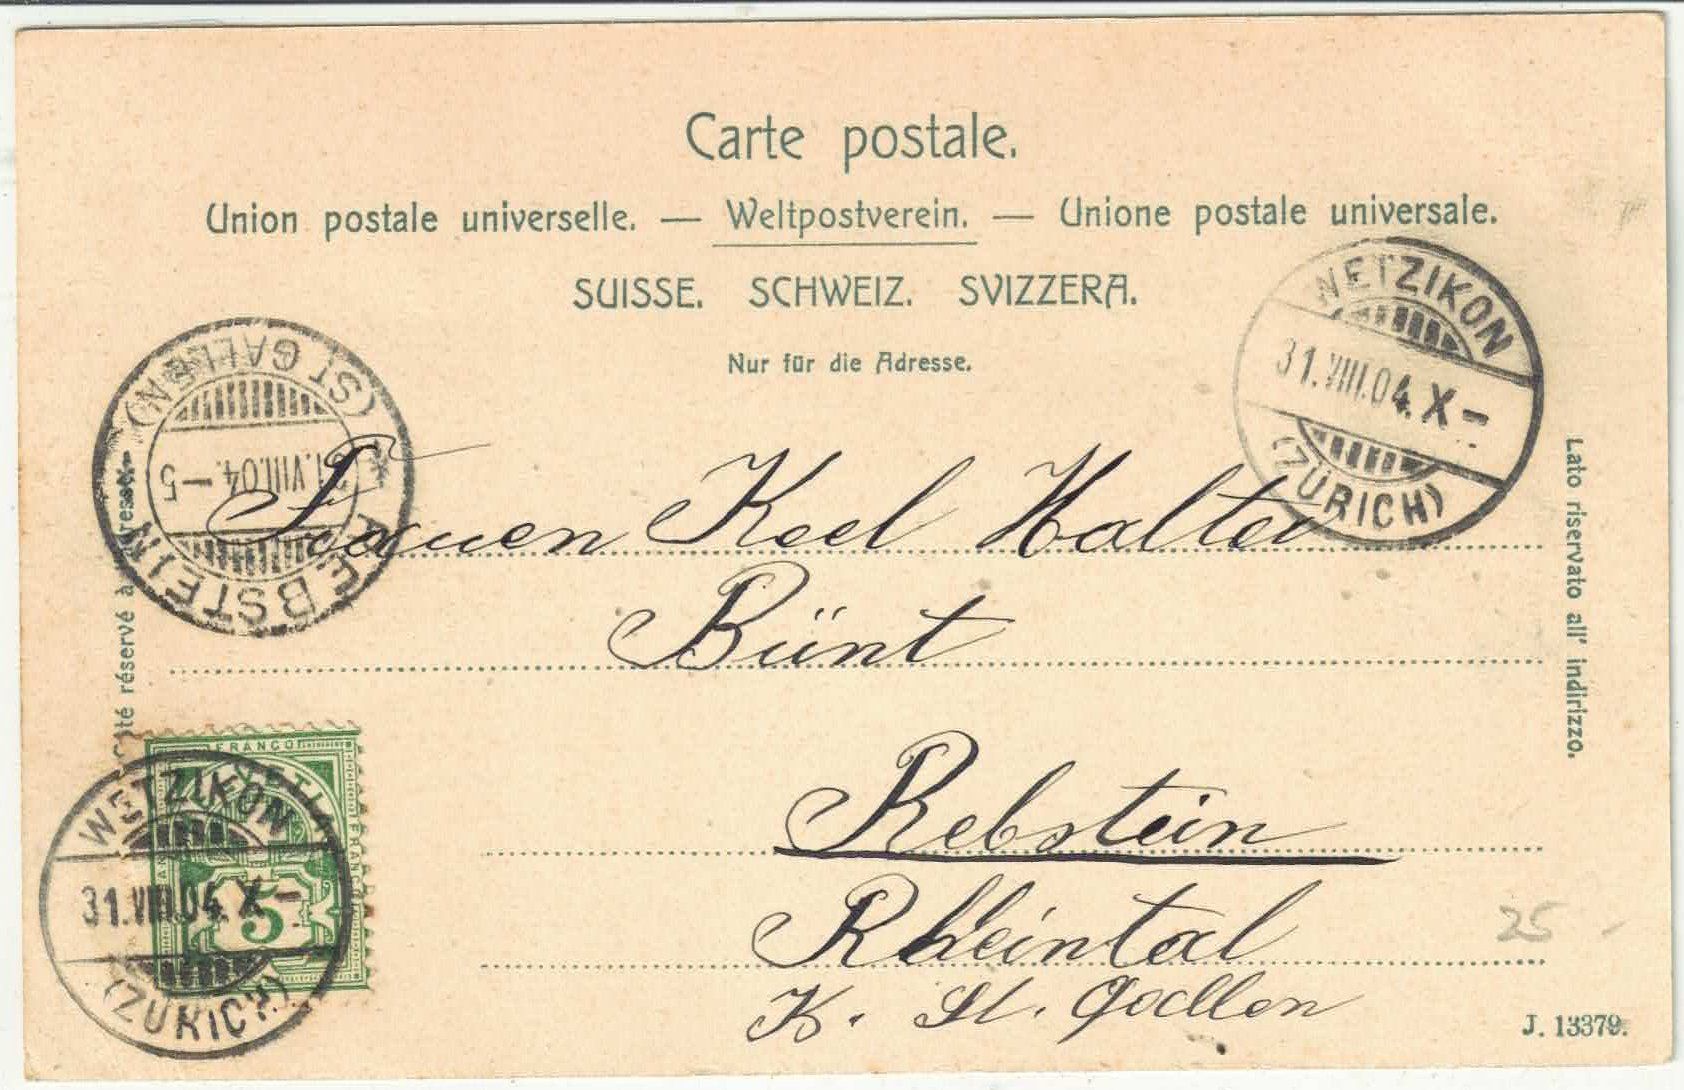 Carte postale.
Union postale universelle. — Weltpostverein. — Unione postale universale.
SUISSE. SCHWEIZ. SVIZZERA.
Nur für die Adresse.
WETZIKON
31.VIII.04.X-
(ZÜRICH)
(ST GALLEN)
31.VIII.04.-5
REBSTEIN
Côté réservé à
Lato riservato all' indirizzo.
Frauen Keel Halter
Bünt
Rebstein
Rheintal
K. St. Gallen
FRANCO
5
WETZIKON
31.VIII.04.X-
(ZÜRICH)
25
J. 13379.